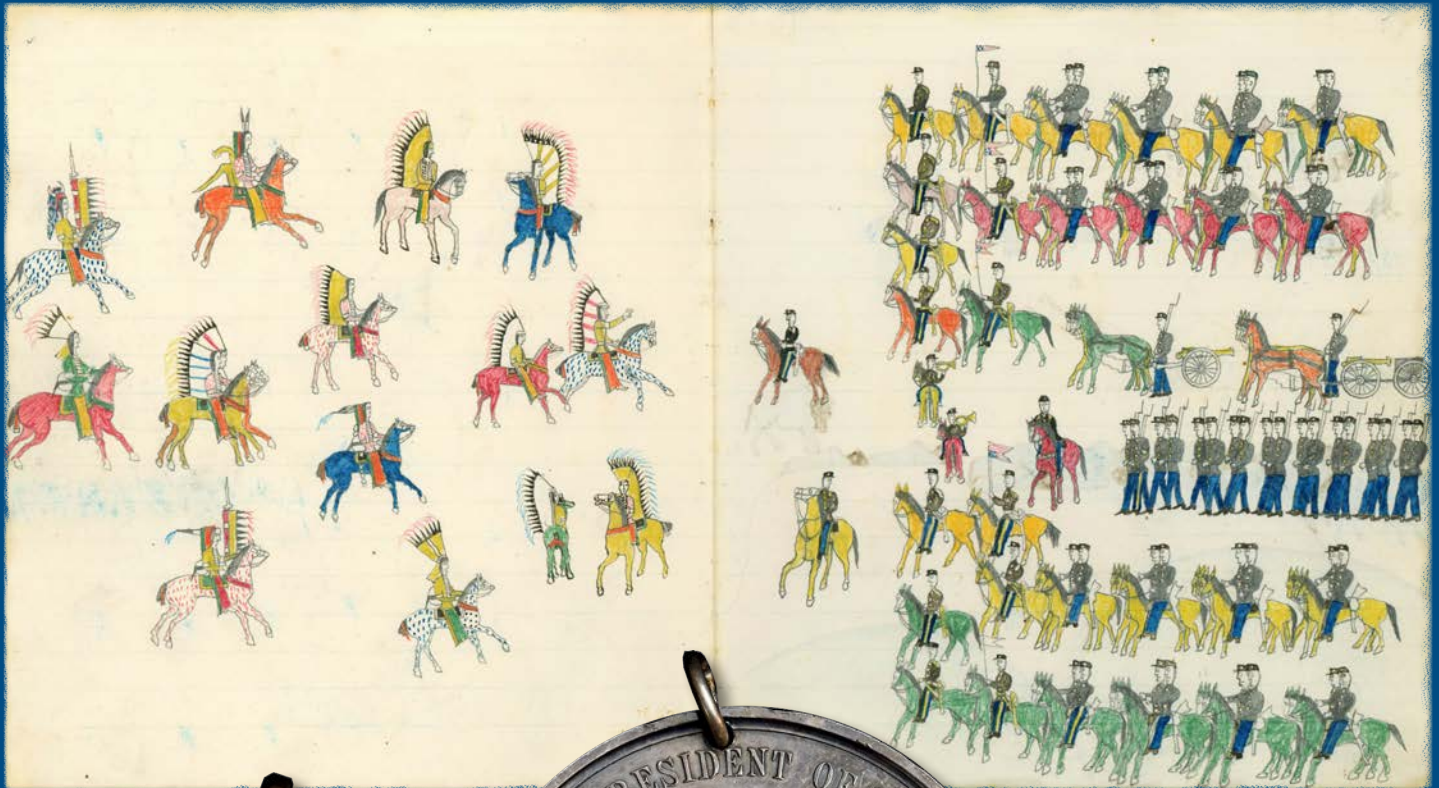 RESIDENT OF